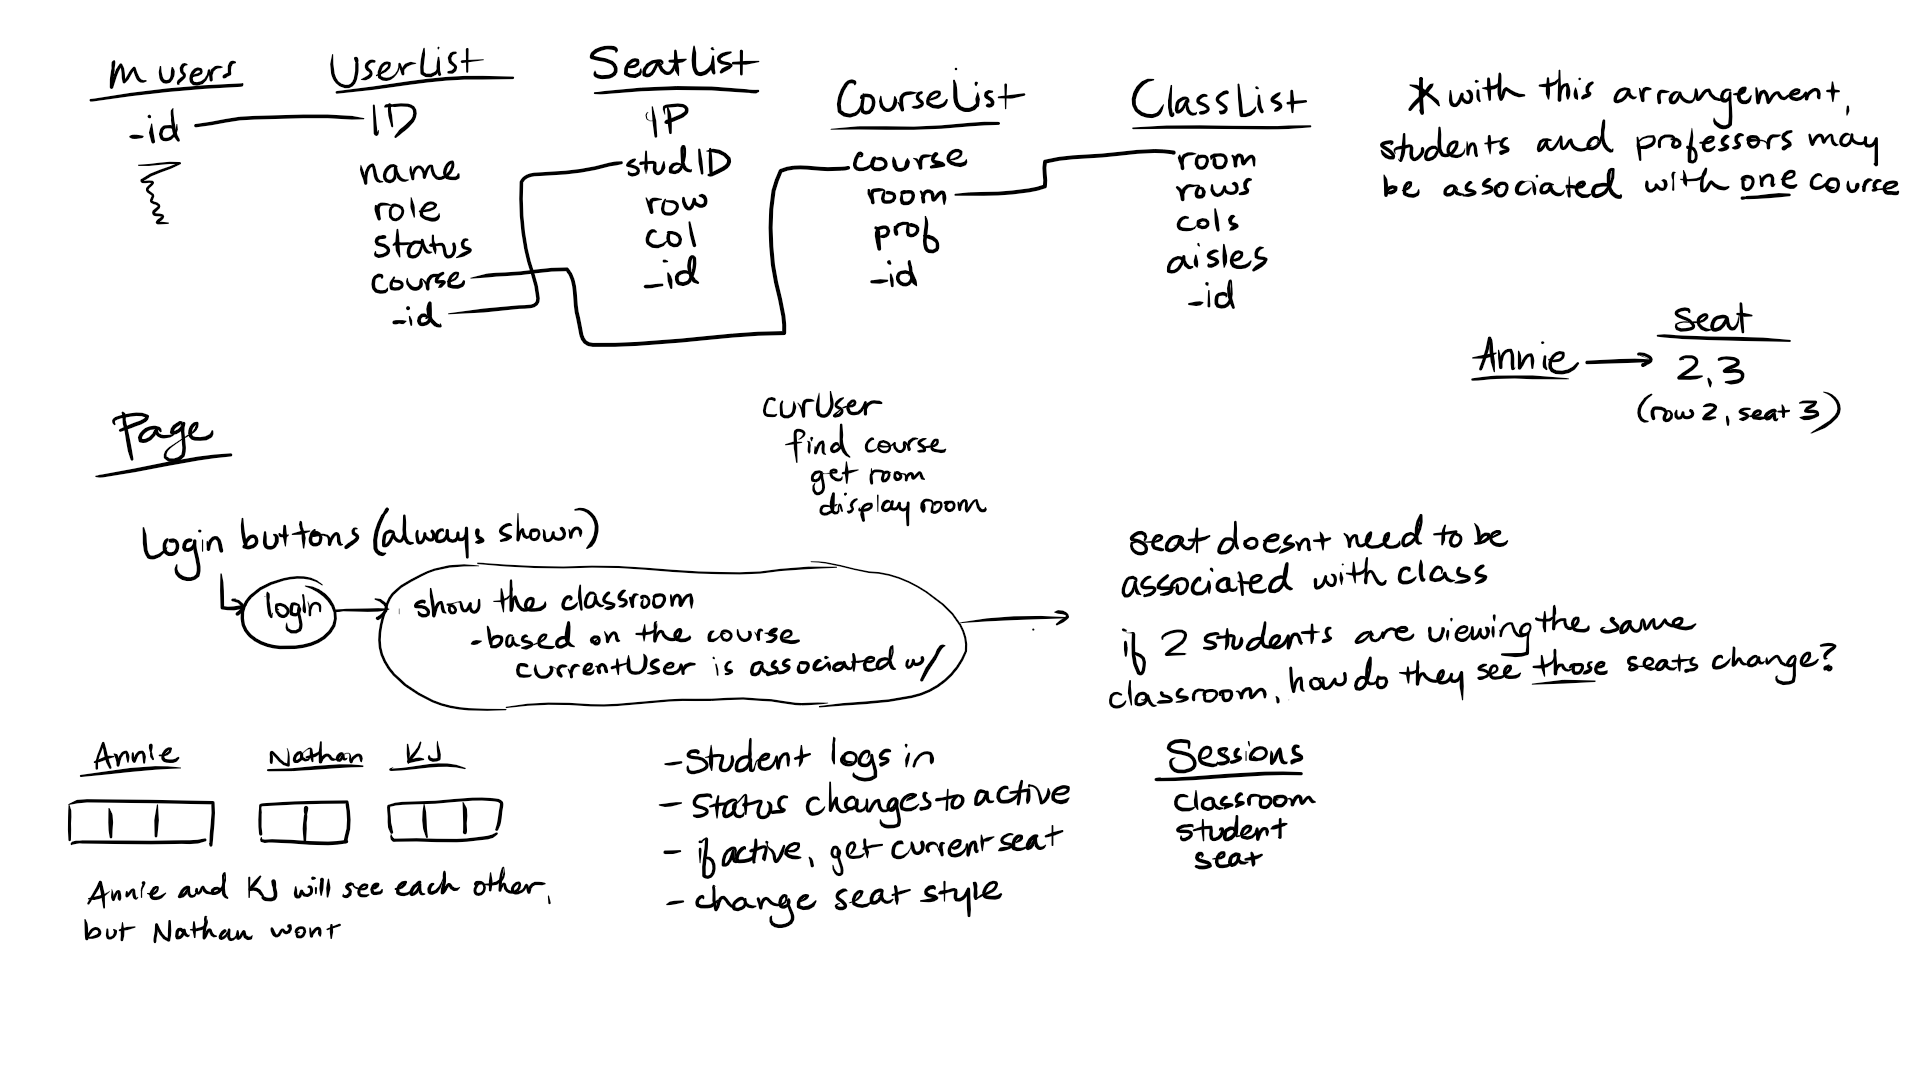 m users
-id
UserList
ID
name
role
status
course
-id
SeatList
IP
studID
row
col
-id
CourseList
course
room
prof
-id
ClassList
room
rows
cols
aisles
-id
* with this arrangement,
students and professors may
be associated with one course
Seat
Annie → 2,3
(row 2, seat 3)
Page
curUser
find course
get room
display room
Login buttons (always shown)
login
show the classroom
-based on the course
currentUser is associated w/
seat doesnt need to be
associated with class
if 2 students are viewing the same
classroom, how do they see those seats change?
Annie Nathan KJ
Annie and KJ will see each other,
but Nathan wont
- Student logs in
- Status changes to active
- if active, get current seat
- change seat style
Sessions
classroom
student
seat